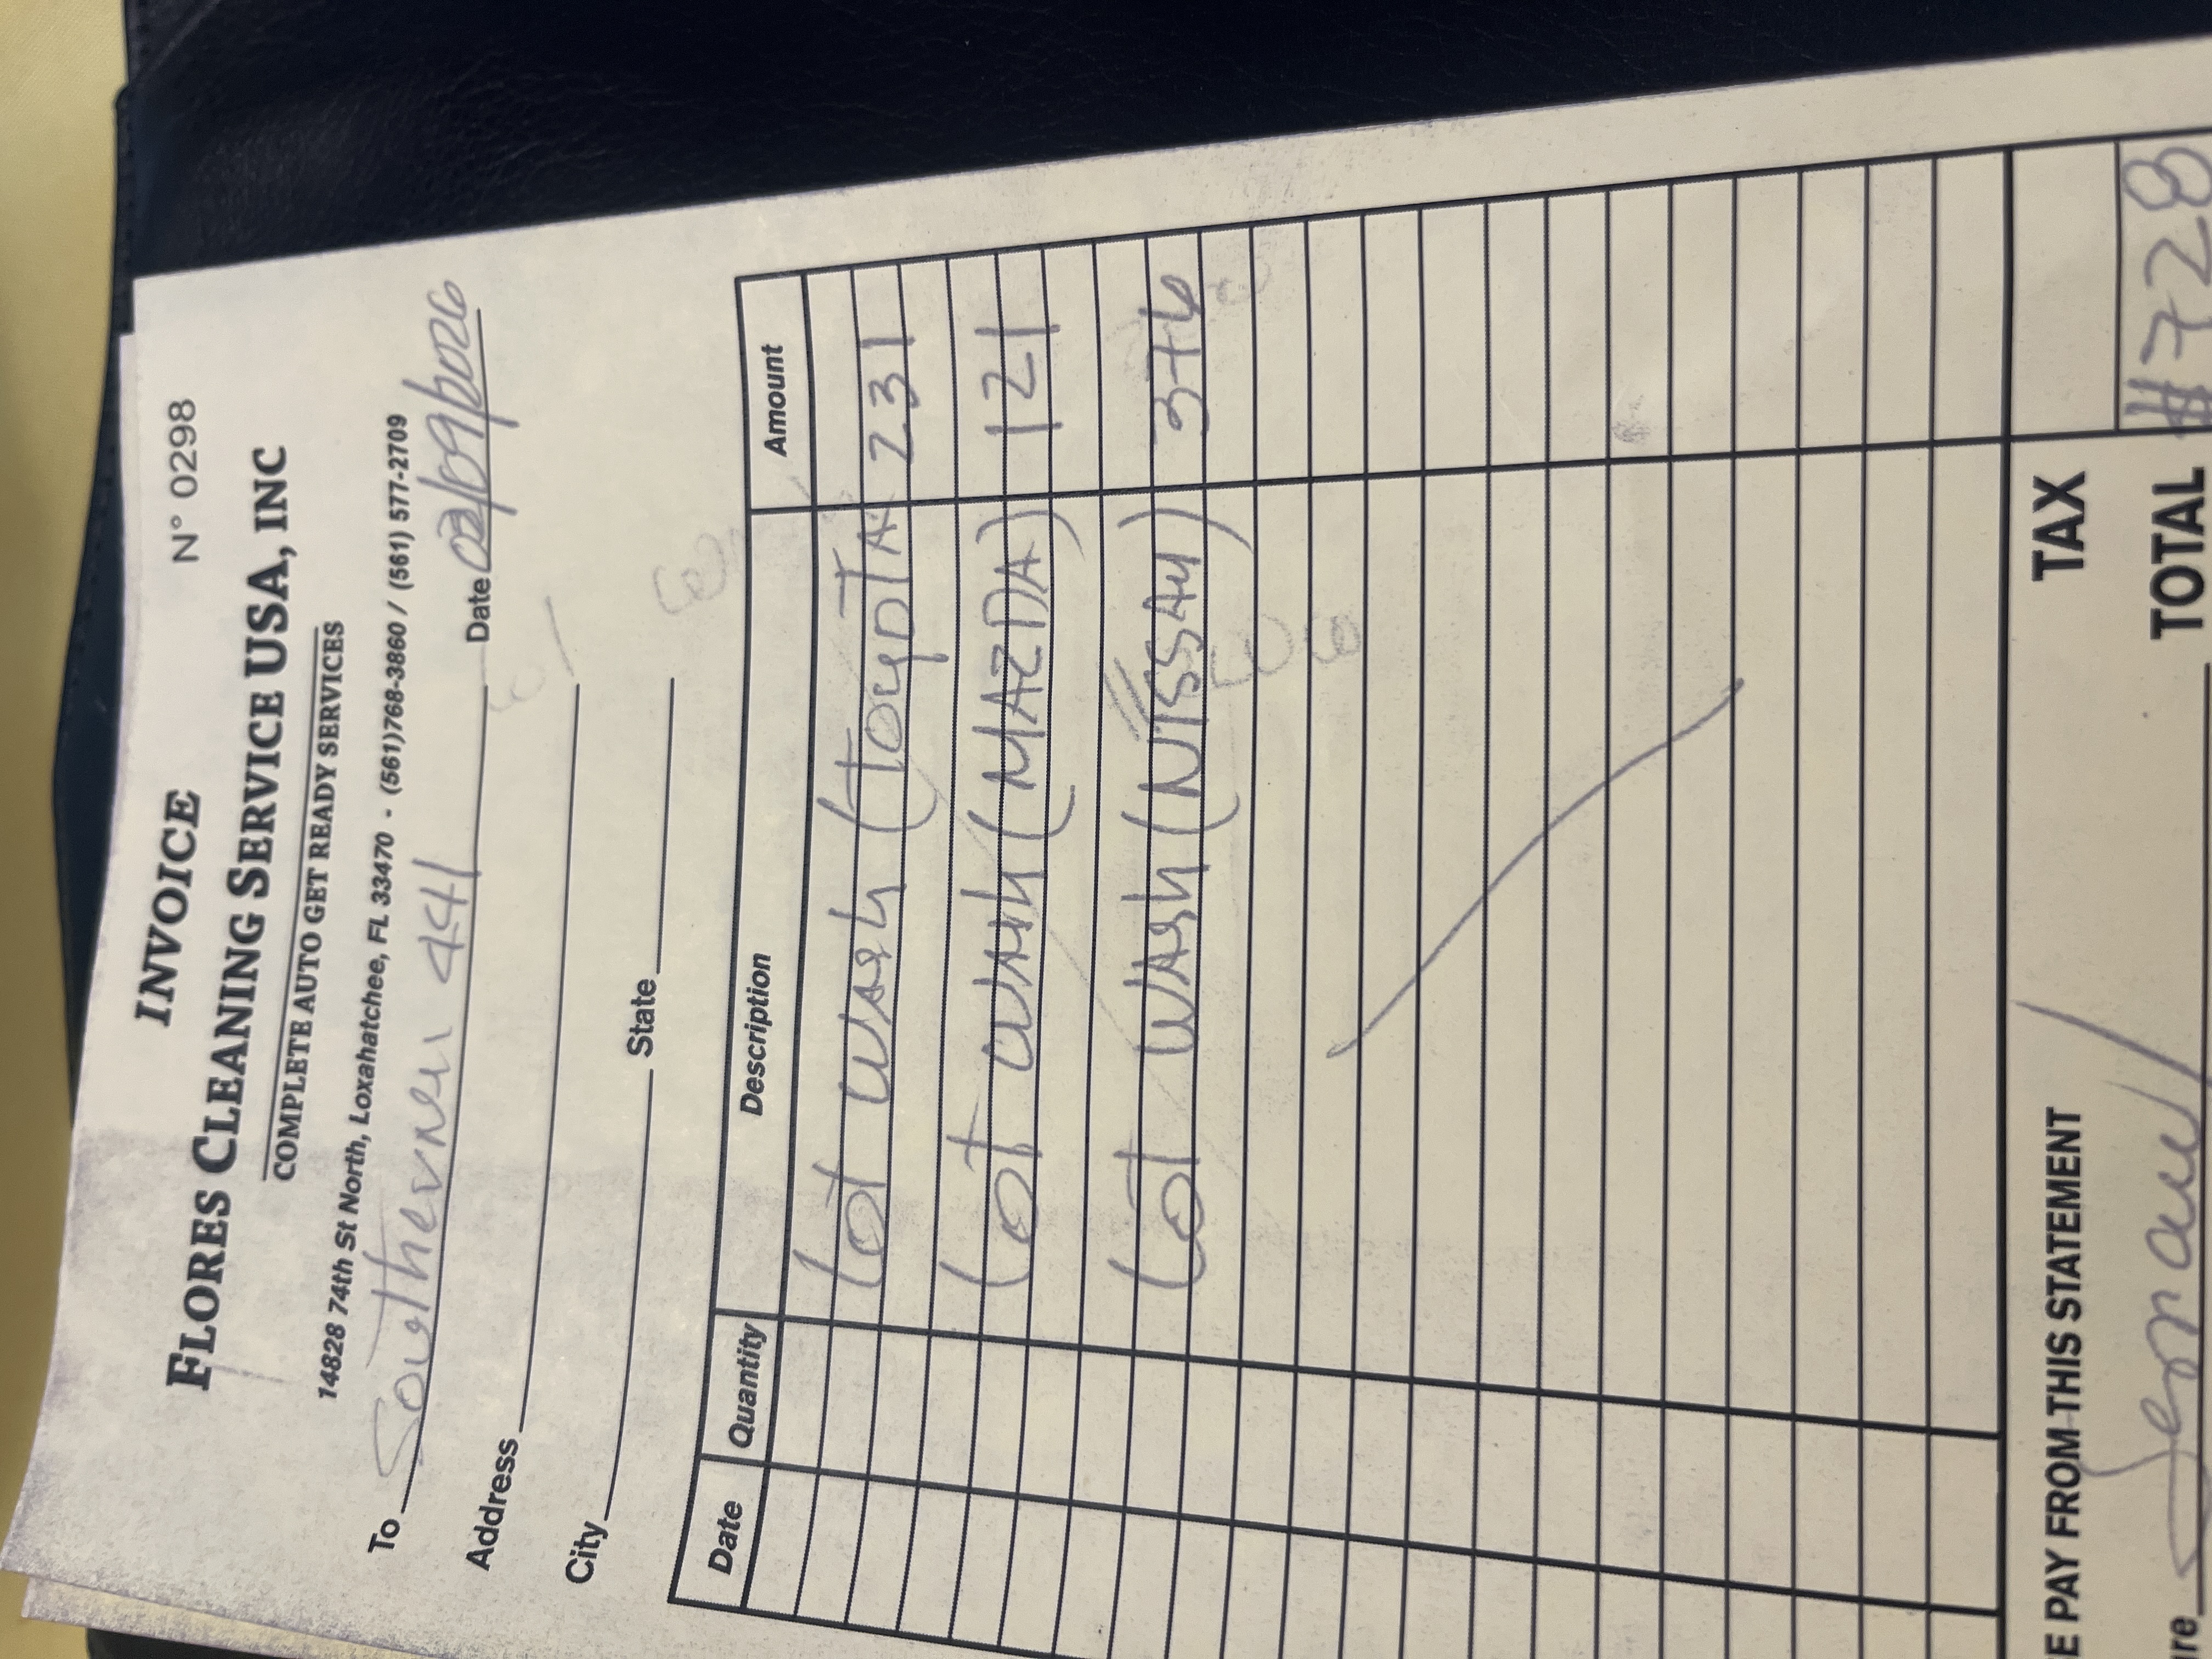 INVOICE N° 0298
FLORES CLEANING SERVICE USA, INC
COMPLETE AUTO GET READY SERVICES
14828 74th St North, Loxahatchee, FL 33470 - (561)768-3860 / (561) 577-2709
To Southernen 441 Date 02/09/2026
Address
City State
Date Quantity Description Amount
Lot Wash (ToyoTA 231
Lot WASH (MAZDA) 121
Lot WASH (NISSAN) 376
E PAY FROM THIS STATEMENT TAX
ure TOTAL #728